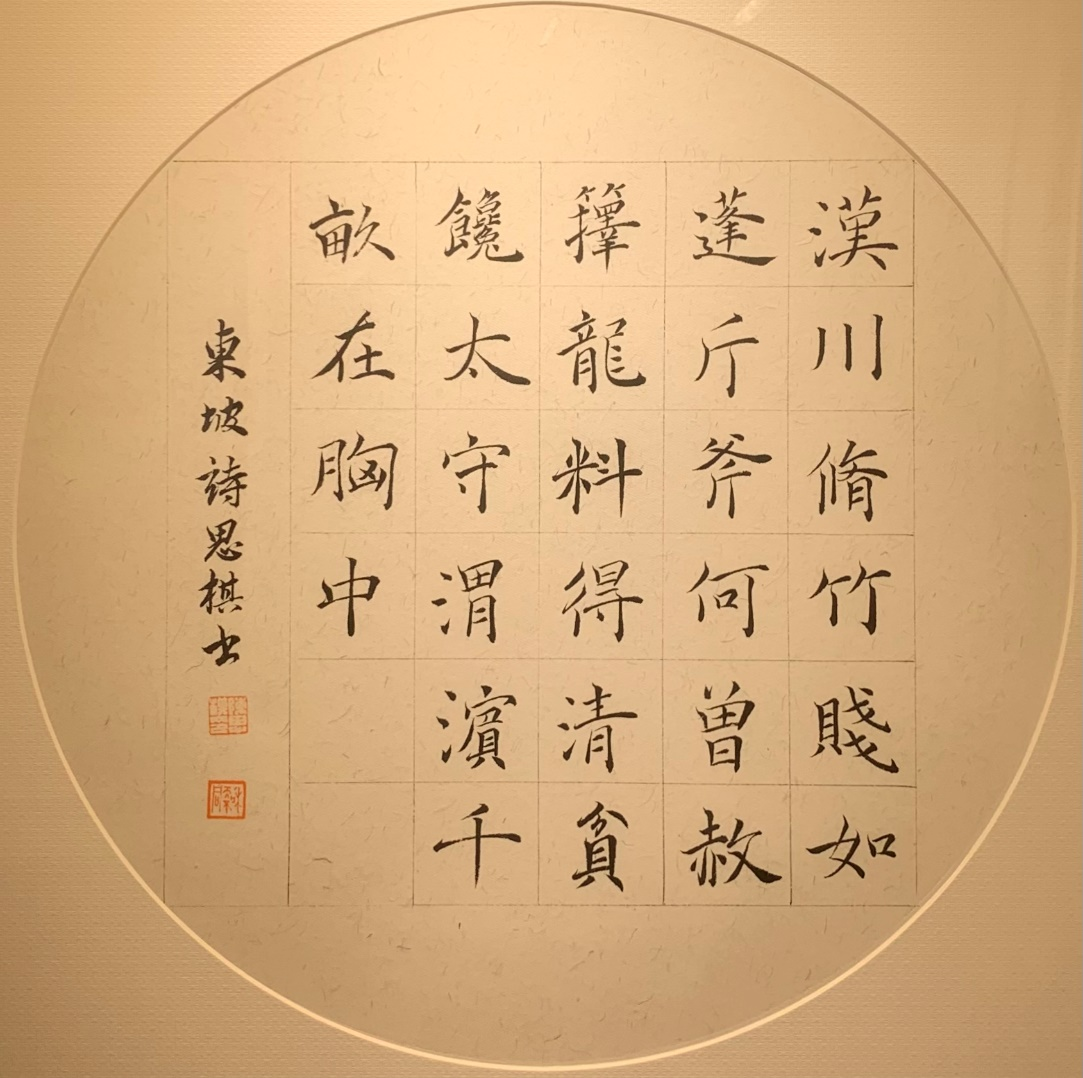 漢川脩竹賤如
蓬斤斧何曾赦
籜龍料得清貧
饞太守渭濱千
畆在胸中
東坡詩思棋书